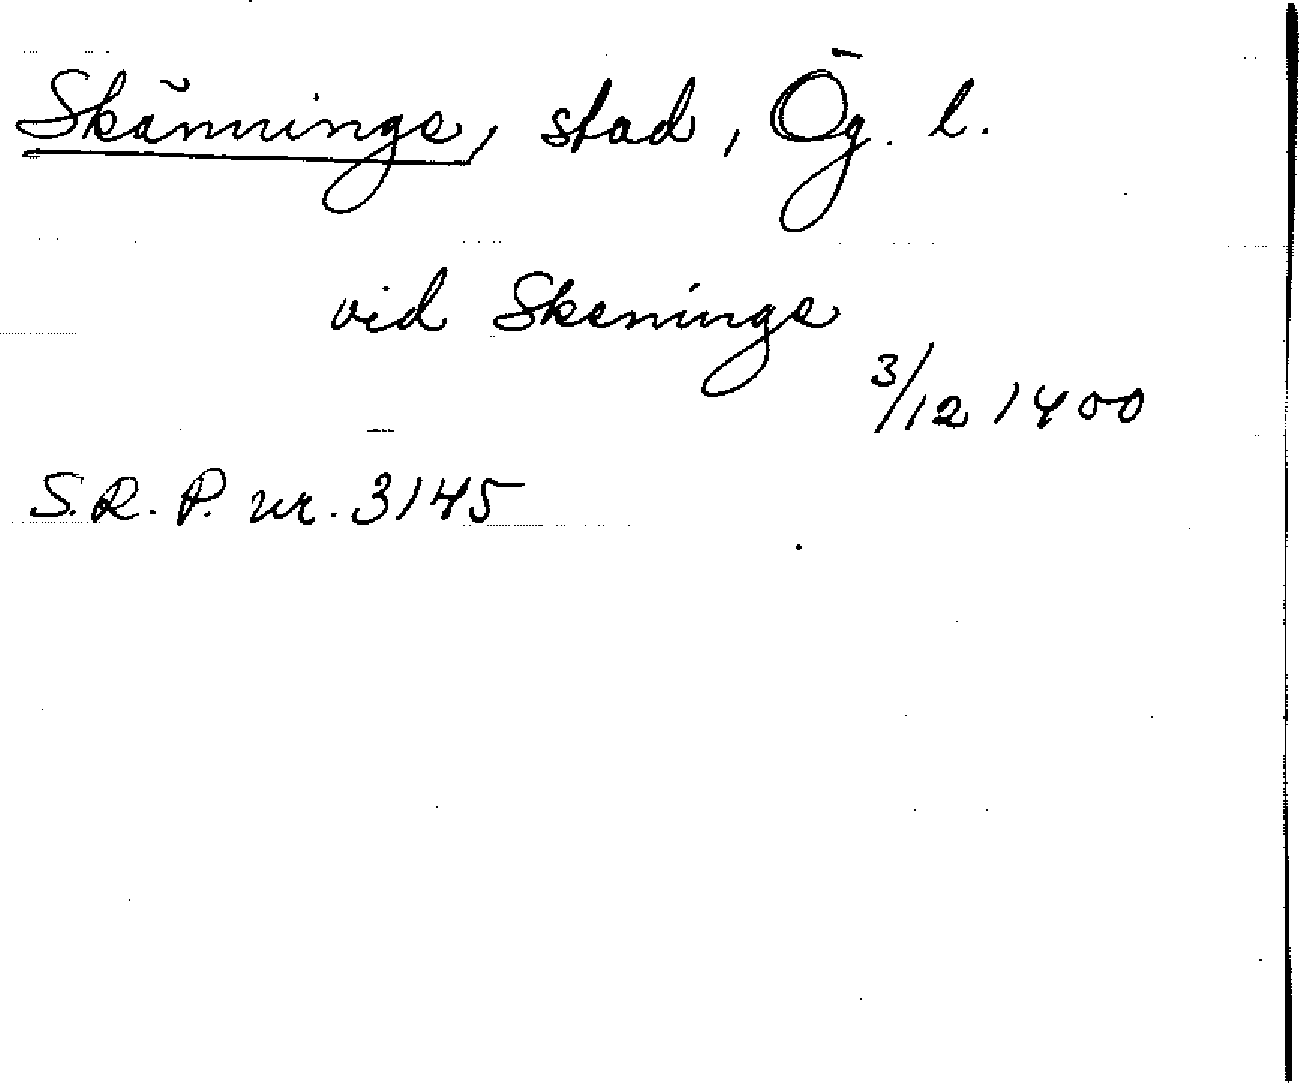 Skänninge, stad, Ög. l.
vid Skeninge
3/12 1400
S.R.P. nr. 3145